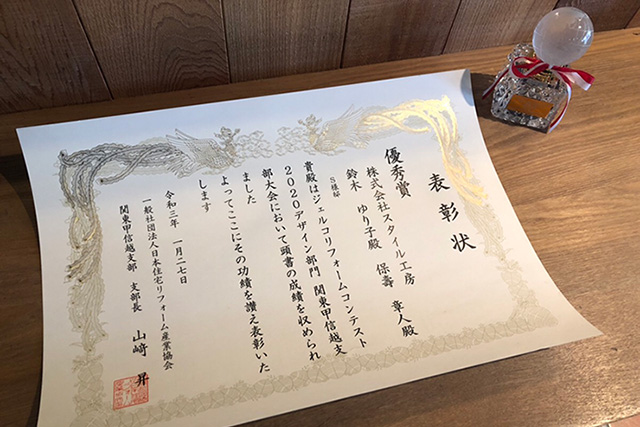 表彰状
優秀賞
株式会社スタイル工房
鈴木 ゆり子殿 保壽 章人殿
S様邸
貴殿はジェルコリフォームコンテスト
2020デザイン部門 関東甲信越支
部大会において頭書の成績を収められ
ました
よってここにその功績を讃え表彰いた
します
令和三年 一月二七日
一般社団法人日本住宅リフォーム産業協会
関東甲信越支部 支部長 山﨑 昇